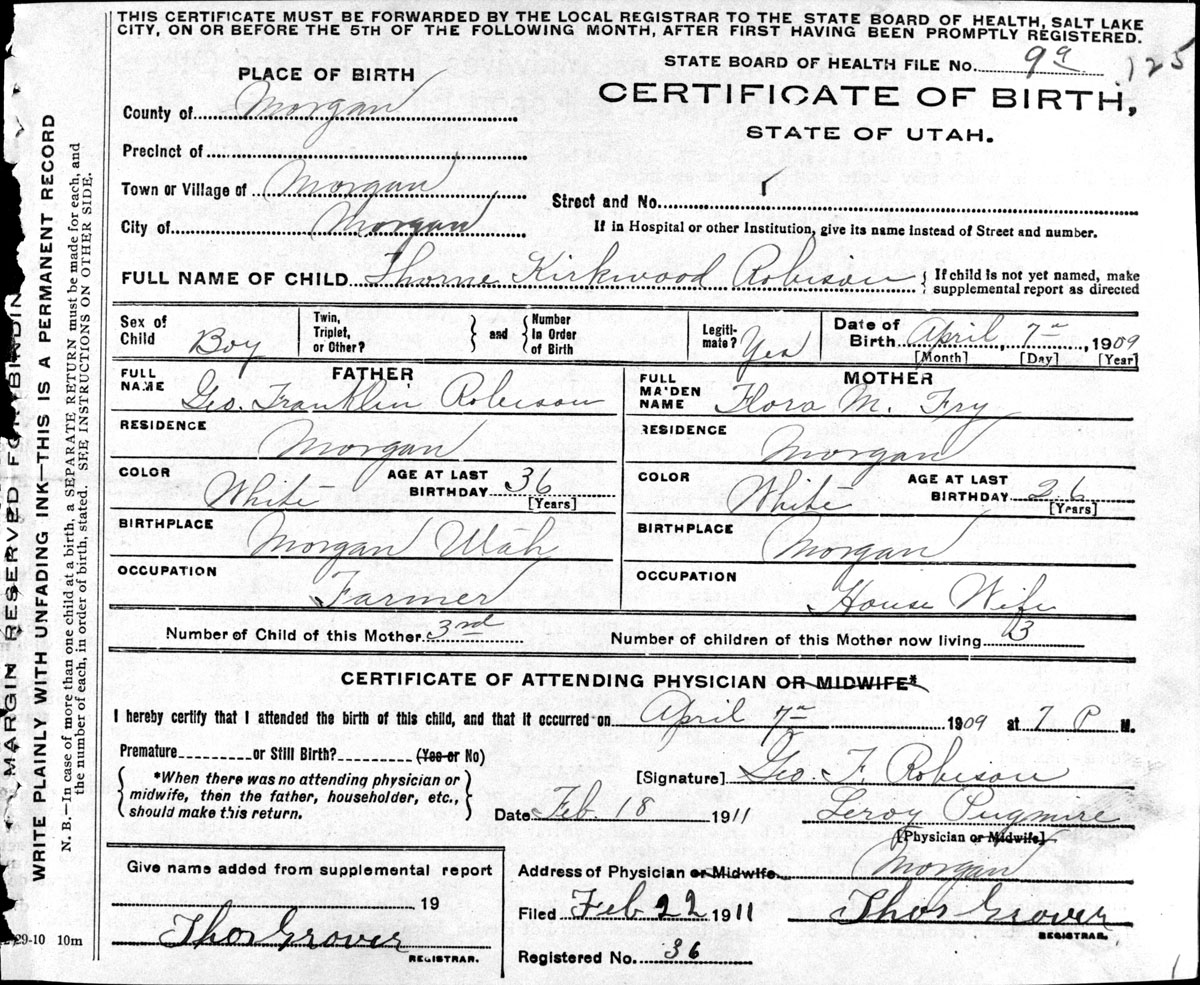 THIS CERTIFICATE MUST BE FORWARDED BY THE LOCAL REGISTRAR TO THE STATE BOARD OF HEALTH, SALT LAKE
CITY, ON OR BEFORE THE 5TH OF THE FOLLOWING MONTH, AFTER FIRST HAVING BEEN PROMPTLY REGISTERED.
STATE BOARD OF HEALTH FILE No. 9a 125
PLACE OF BIRTH
CERTIFICATE OF BIRTH,
STATE OF UTAH.
County of Morgan
Precinct of
Town or Village of Morgan
Street and No.
City of Morgan
If in Hospital or other Institution, give its name instead of Street and number.
FULL NAME OF CHILD Thorne Kirkwood Robison { If child is not yet named, make
supplemental report as directed
Sex of Child Boy
Twin, Triplet, or Other? } and { Number in Order of Birth
Legiti-mate? Yes
Date of Birth April, 7", 1909
[Month] [Day] [Year]
FATHER
FULL NAME Geo. Franklin Robison
MOTHER
FULL MAIDEN NAME Flora M. Fry
RESIDENCE Morgan
RESIDENCE Morgan
COLOR White AGE AT LAST BIRTHDAY 36 [Years]
COLOR White AGE AT LAST BIRTHDAY 26 [Years]
BIRTHPLACE Morgan Utah
BIRTHPLACE Morgan
OCCUPATION Farmer
OCCUPATION House Wife
Number of Child of this Mother. 3rd
Number of children of this Mother now living 3
CERTIFICATE OF ATTENDING PHYSICIAN OR MIDWIFE*
I hereby certify that I attended the birth of this child, and that it occurred on April 7" 1909 at 7 P M.
Premature or Still Birth? (Yes or No)
{ *When there was no attending physician or
midwife, then the father, householder, etc.,
should make this return. }
[Signature] Geo. F Robison
Date Feb. 18 1911 Leroy Pugmire
[Physician or Midwife]
Give name added from supplemental report
19
Thos Grover
REGISTRAR.
Address of Physician or Midwife. Morgan
Filed Feb 22 1911 Thos Grover
REGISTRAR.
Registered No. 36
29-10 10m
MARGIN RESERVED FOR BINDIN
WRITE PLAINLY WITH UNFADING INK—THIS IS A PERMANENT RECORD
N. B.—In case of more than one child at a birth, a SEPARATE RETURN must be made for each, and
the number of each, in order of birth, stated. SEE INSTRUCTIONS ON OTHER SIDE.